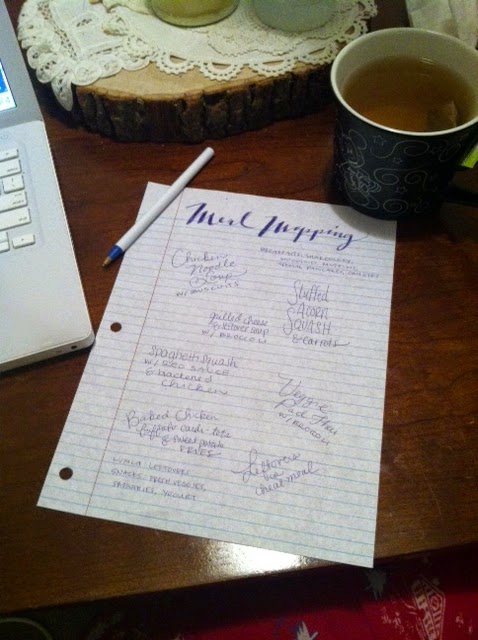 Meal Mapping
BREAKFASTS: SHAKEOLOGY,
OATMEAL MUFFINS,
PROTEIN PANCAKES,
Chicken
Noodle
Soup
w/ BISCUITS
Stuffed
Acorn
SQUASH
& carrots
grilled cheese
& leftover soup
w/ BROCCOLI
spaghetti squash
w/ RED SAUCE
& blackened
chicken
Veggie
Pad Thai
w/ BROCCOLI
Baked Chicken
Buffalo
& sweet potato
FRIES
Leftovers
cheat meal
LUNCH: LEFTOVERS
SNACKS: FRESH VEGGIES,
SMOOTHIES, YOGURT